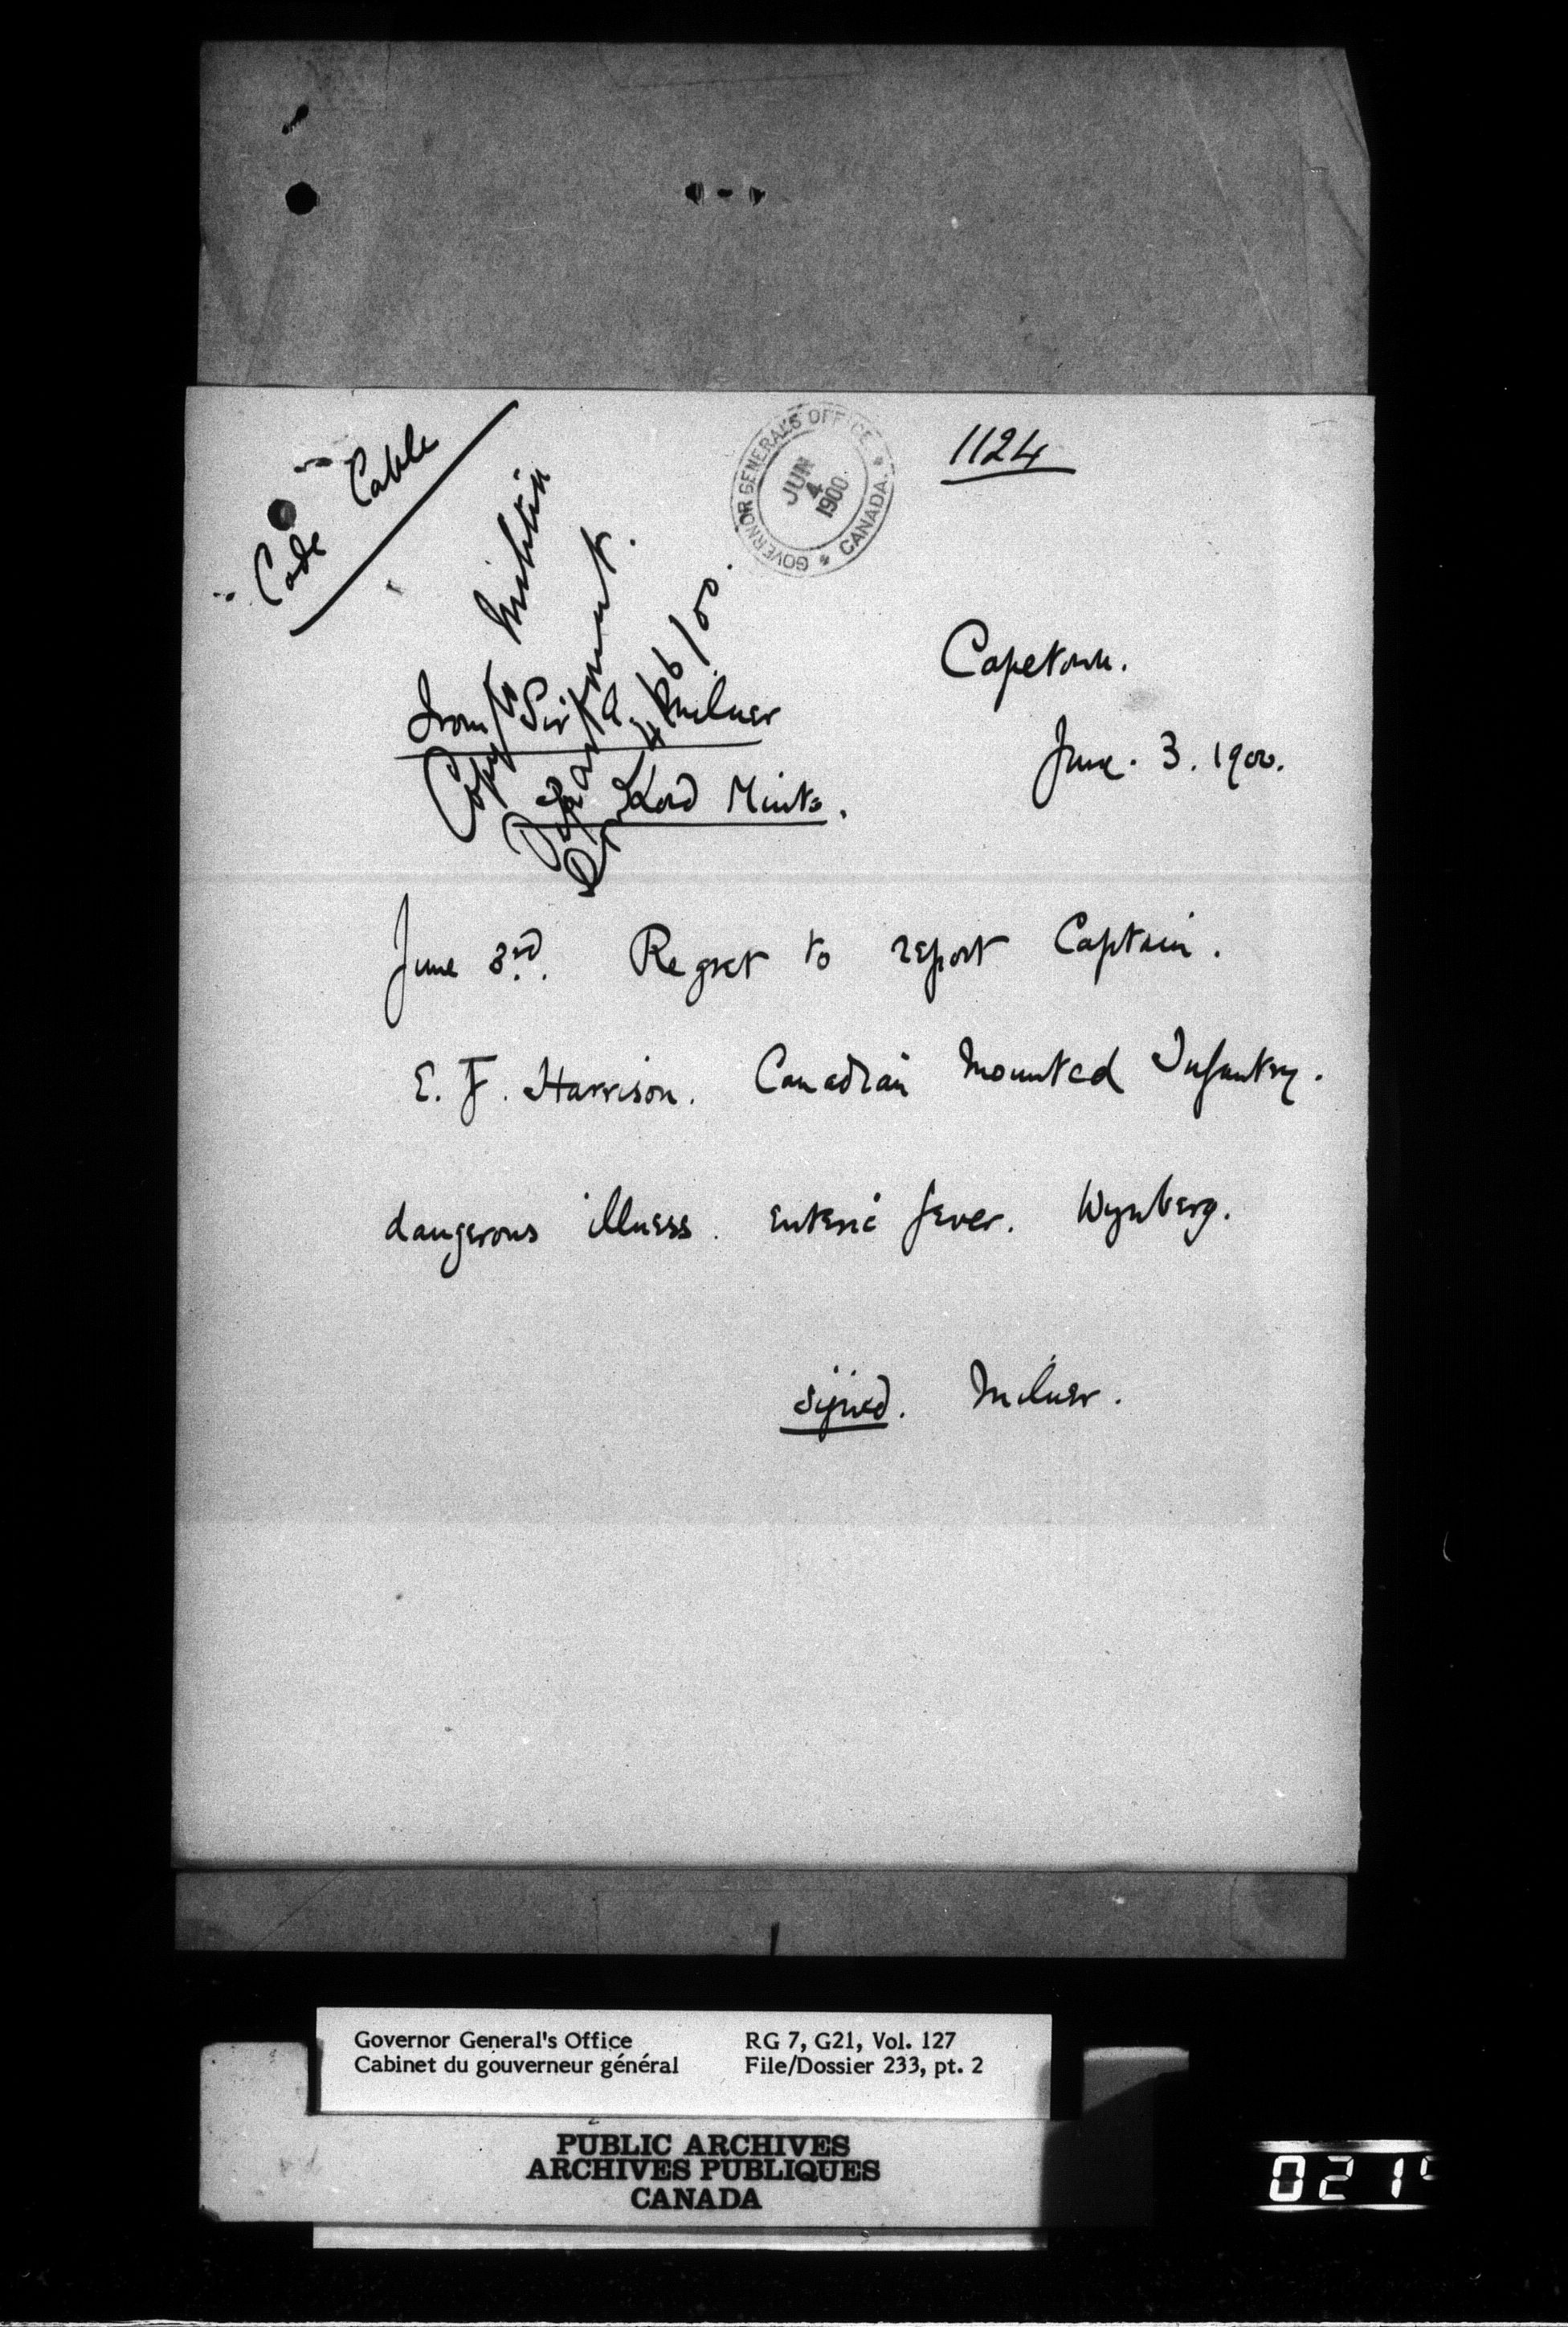 Code Cable
GOVERNOR GENERAL'S OFFICE
CANADA
JUN
4
1900
1124
Copy to Militia
Department.
4/6/00.
Capetown.
June. 3. 1900.
From Sir A. Milner
Lord Minto.
June 3rd. Regret to report Captain.
E. F. Harrison. Canadian Mounted Infantry.
dangerous illness. enteric fever. Wynberg.
signed. Milner.
Governor General's Office RG 7, G21, Vol. 127
Cabinet du gouverneur général File/Dossier 233, pt. 2
PUBLIC ARCHIVES
ARCHIVES PUBLIQUES
CANADA
021